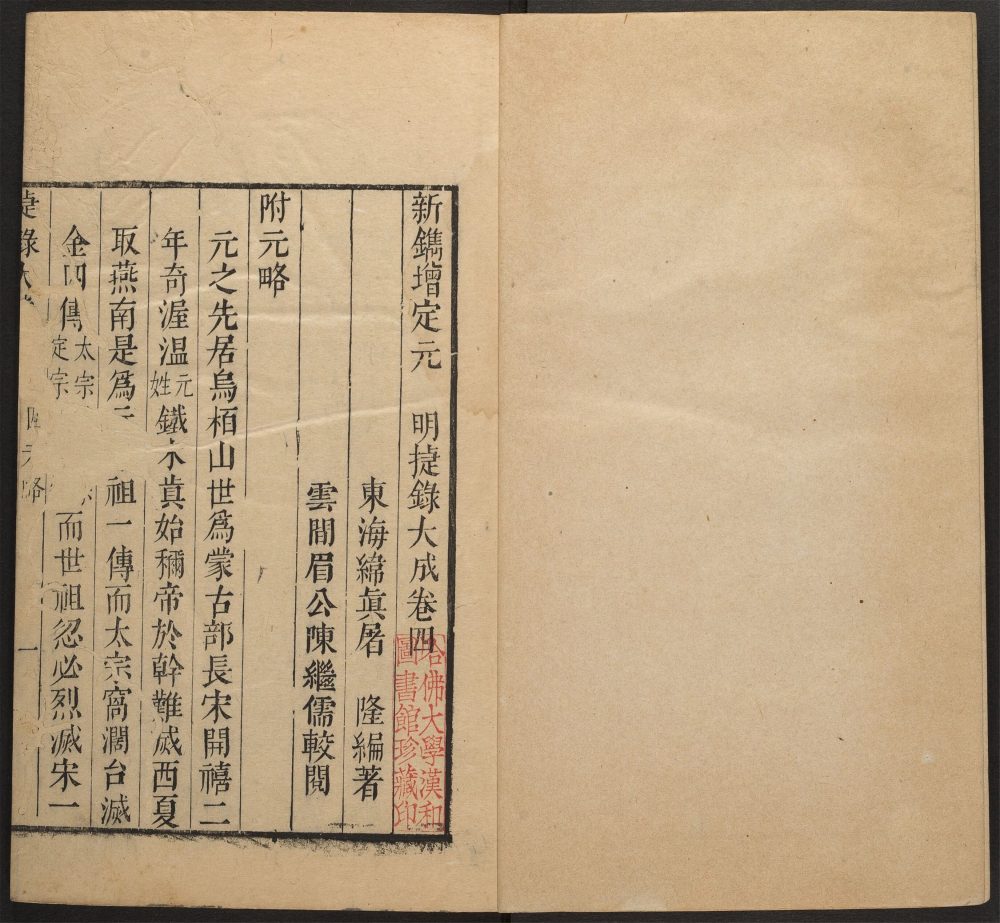 新鐫增定元 明捷錄大成卷四
東海緯眞屠 隆編著
雲間眉公陳繼儒較閱
附元略
元之先居烏栢山世爲蒙古部長宋開禧二
年奇渥温元姓鐵木眞始稱帝於斡難滅西夏
取燕南是爲 祖一傳而太宗窩濶台滅
金四傳太宗定宗 而世祖忽必烈滅宋一
捷錄大 略 一
哈佛大學漢和
圖書館珍藏印